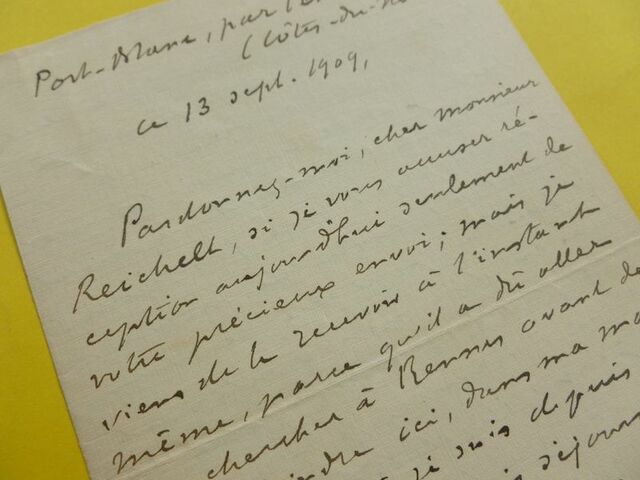 Port-Blanc, par
(Côtes-du-No
ce 13 sept. 1909,
Pardonnez-moi, cher Monsieur
Reichelt, si je vous accuse ré-
ception aujourd'hui seulement de
votre précieux envoi; mais je
viens de le recevoir à l'instant
même, parce qu'il a dû aller
chercher à Rennes avant de
indre ici, dans ma ma
je suis depuis
séjour